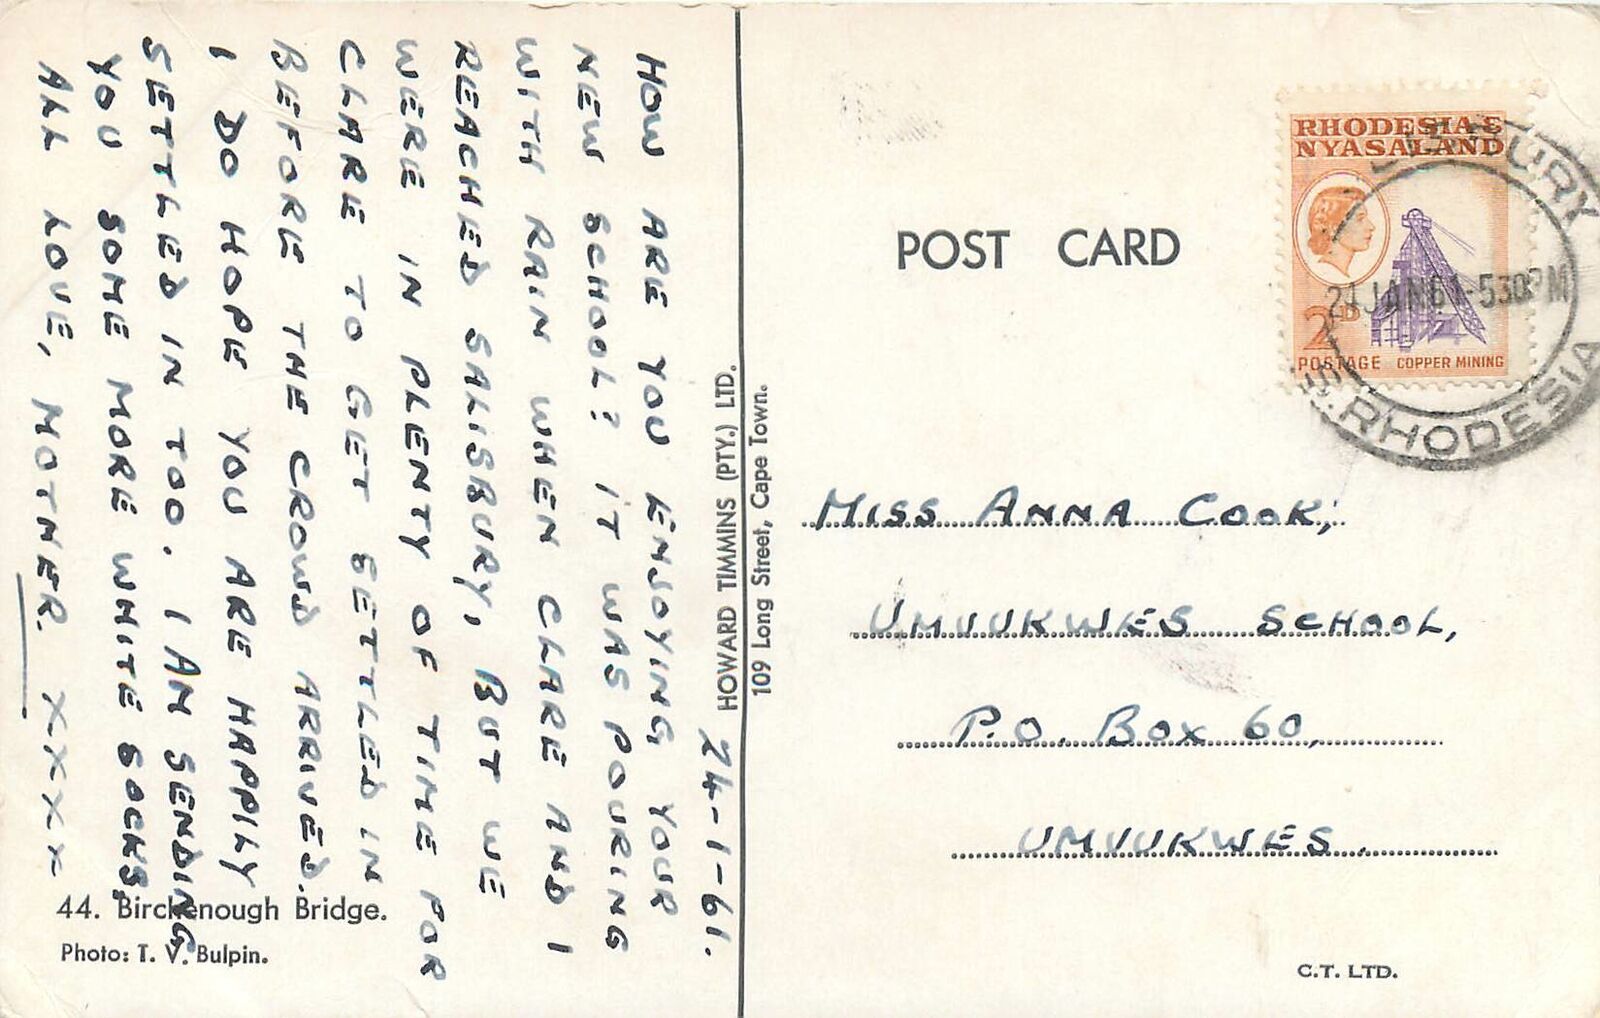 24-1-61.
HOW ARE YOU ENJOYING YOUR
NEW SCHOOL? IT WAS POURING
WITH RAIN WHEN CLARE AND I
REACHED SALISBURY, BUT WE
WERE IN PLENTY OF TIME FOR
CLARE TO GET SETTLED IN
BEFORE THE CROWD ARRIVED.
I DO HOPE YOU ARE HAPPILY
SETTLED IN TOO. I AM SENDING
YOU SOME MORE WHITE SOCKS,
ALL LOVE, MOTHER. XXXX
44. Birchenough Bridge.
Photo: T. V. Bulpin.
HOWARD TIMMINS (PTY.) LTD.
109 Long Street, Cape Town.
POST CARD
RHODESIA &
NYASALAND
2D
POSTAGE COPPER MINING
JAN 61-530PM
S. RHODESIA
MISS ANNA COOK,
UMVUKWES SCHOOL,
P.O. BOX 60,
UMVUKWES.
C.T. LTD.